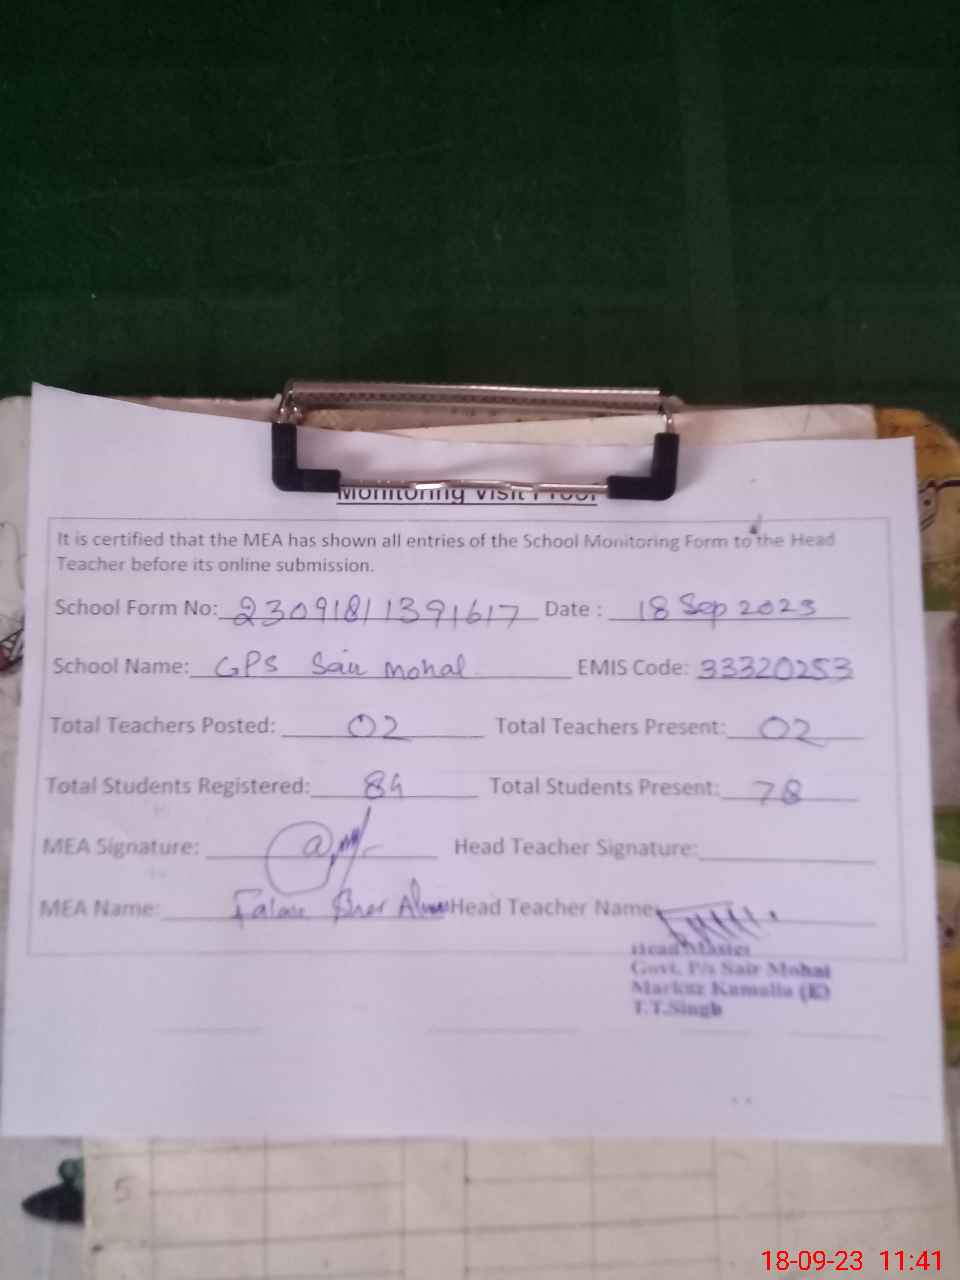 Monitoring Visit Proof
It is certified that the MEA has shown all entries of the School Monitoring Form to the Head
Teacher before its online submission.
School Form No: 23091811391617 Date : 18 Sep 2023
School Name: GPS Sair Mohal EMIS Code: 33320253
Total Teachers Posted: 02 Total Teachers Present: 02
Total Students Registered: 84 Total Students Present: 78
MEA Signature: Head Teacher Signature:
MEA Name: Head Teacher Name:
Head Master
Govt. P/s Sair Mohal
Markaz Kamalia (E)
T.T.Singh
5
18-09-23 11:41